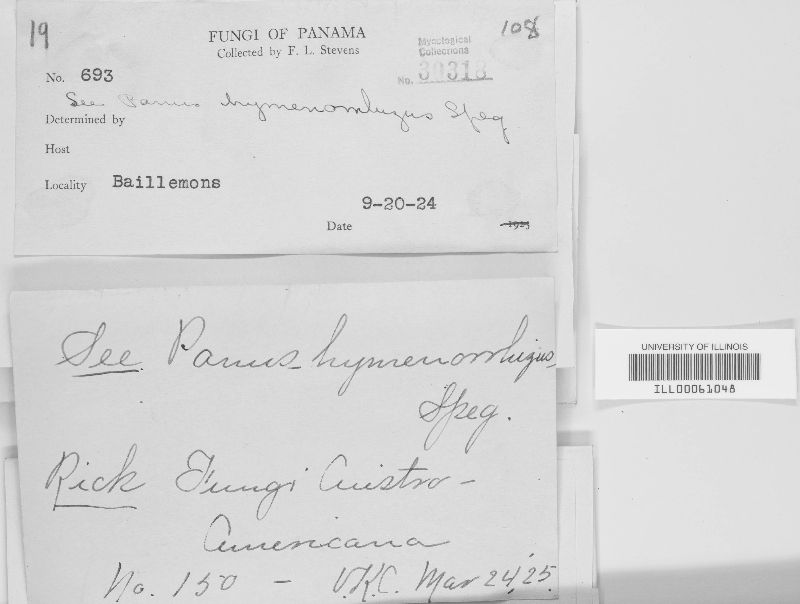 19
FUNGI OF PANAMA
Collected by F. L. Stevens
108
Mycological
Collections
No. 30318
No. 693
See Panus hymenorrhizus Speg
Determined by
Host
Locality Baillemons
9-20-24
Date 1923
See Panus hymenorrhizus
Speg.
Rick Fungi Austro-
Americana
No. 150 - V.K.C. Mar 24, '25.
UNIVERSITY OF ILLINOIS
ILL00061048